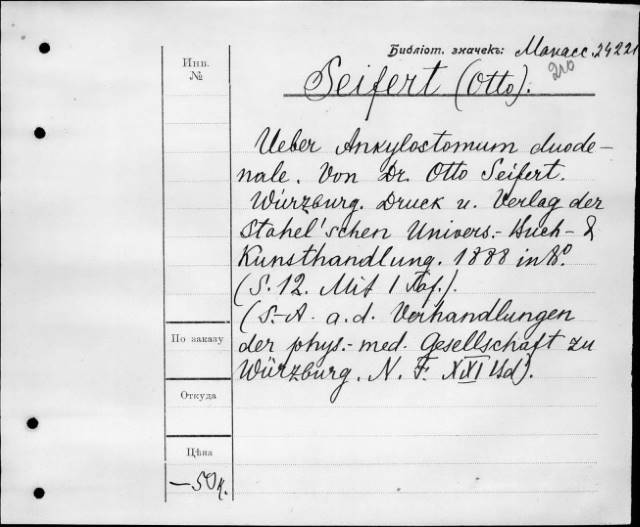 Библіот. значекъ: Макасс. 24221
Инв.
№
Seifert (Otto).
Ueber Ankylostomum duode-
nale. Von Dr. Otto Seifert.
Würzburg. Druck u. Verlag der
Stahel'schen Univers.- Buch- &
Kunsthandlung. 1888 in 8º.
(S. 12. Mit 1 Taf.).
(S.-A. a. d. Verhandlungen
По заказу
der phys.- med. Gesellschaft zu
Würzburg. N. F. XXI Bd).
Откуда
Цѣна
—50к.